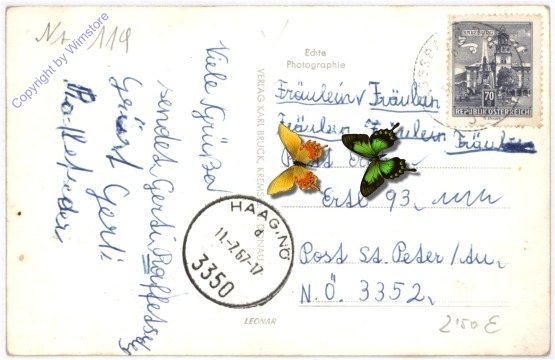 Nr. 119
Copyright by Wimstore
Viele Grüße
sendet Gerti
Gerti
Echte
Photographie
VERLAG KARL BRUCK, KREMS
LEONAR
HAAG, NÖ
11.-7.67-17
3350
SALZBURG
70
REPUBLIK ÖSTERREICH
Fräulein Fräulein
Fräulein Fräulein Fräulein
Post
Ertl 93,
Post St. Peter/Au,
N.Ö. 3352,
2'50 E